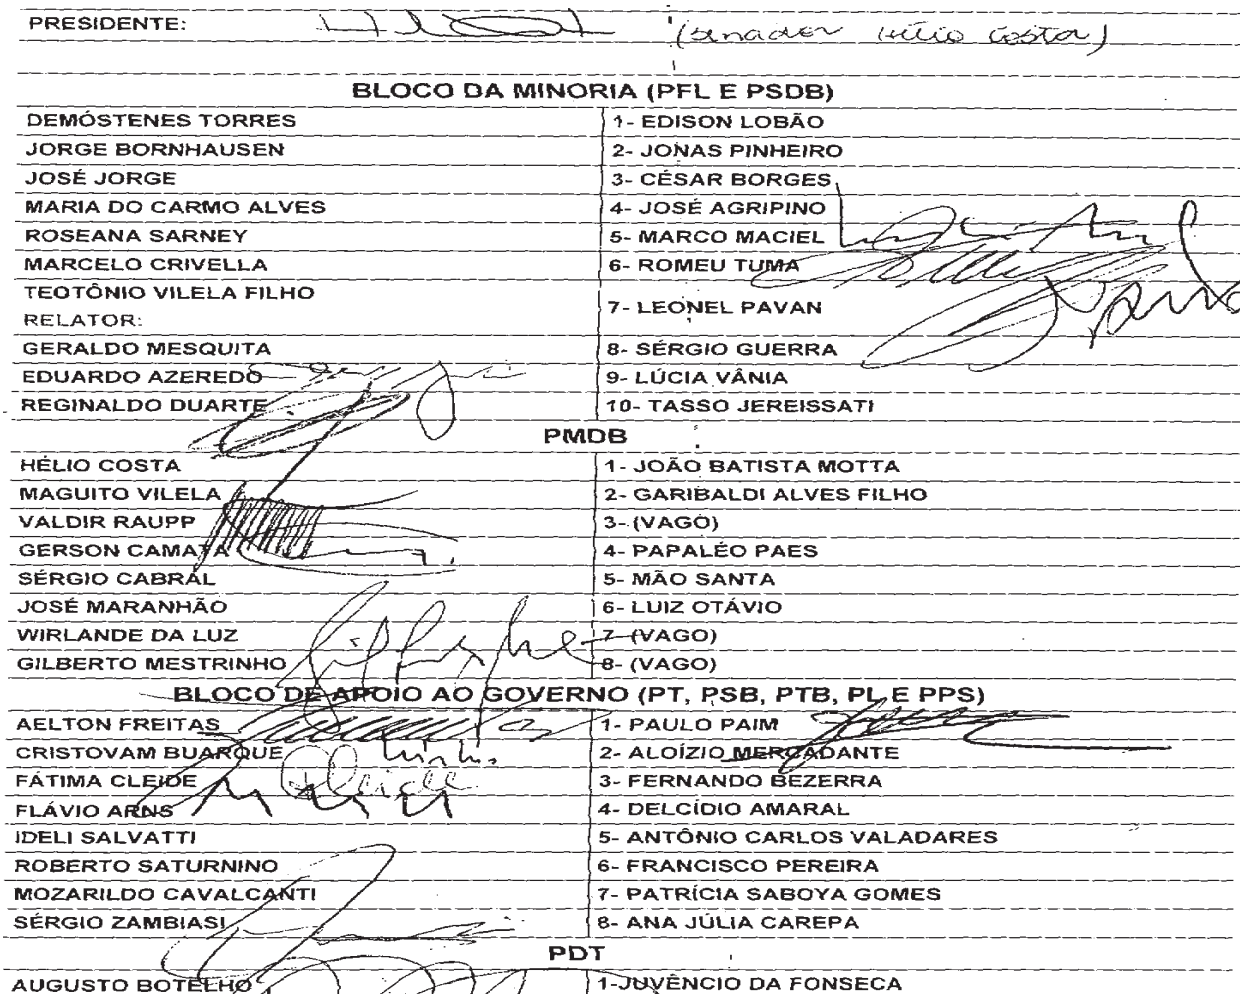 PRESIDENTE: (Senador Hélio Costa)
BLOCO DA MINORIA (PFL E PSDB)
DEMÓSTENES TORRES 1- EDISON LOBÃO
JORGE BORNHAUSEN 2- JONAS PINHEIRO
JOSÉ JORGE 3- CÉSAR BORGES
MARIA DO CARMO ALVES 4- JOSÉ AGRIPINO
ROSEANA SARNEY 5- MARCO MACIEL
MARCELO CRIVELLA 6- ROMEU TUMA
TEOTÔNIO VILELA FILHO 7- LEONEL PAVAN
RELATOR:
GERALDO MESQUITA 8- SÉRGIO GUERRA
EDUARDO AZEREDO 9- LÚCIA VÂNIA
REGINALDO DUARTE 10- TASSO JEREISSATI
PMDB
HÉLIO COSTA 1- JOÃO BATISTA MOTTA
MAGUITO VILELA 2- GARIBALDI ALVES FILHO
VALDIR RAUPP 3- (VAGO)
GERSON CAMATA 4- PAPALÉO PAES
SÉRGIO CABRAL 5- MÃO SANTA
JOSÉ MARANHÃO 6- LUIZ OTÁVIO
WIRLANDE DA LUZ 7- (VAGO)
GILBERTO MESTRINHO 8- (VAGO)
BLOCO DE APOIO AO GOVERNO (PT, PSB, PTB, PL E PPS)
AELTON FREITAS 1- PAULO PAIM
CRISTOVAM BUARQUE 2- ALOÍZIO MERCADANTE
FÁTIMA CLEIDE 3- FERNANDO BEZERRA
FLÁVIO ARNS 4- DELCÍDIO AMARAL
IDELI SALVATTI 5- ANTÔNIO CARLOS VALADARES
ROBERTO SATURNINO 6- FRANCISCO PEREIRA
MOZARILDO CAVALCANTI 7- PATRÍCIA SABOYA GOMES
SÉRGIO ZAMBIASI 8- ANA JÚLIA CAREPA
PDT
AUGUSTO BOTELHO 1-JUVÊNCIO DA FONSECA